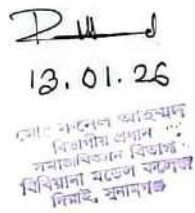 13.01.26
মোঃ রুনেল আহম্মদ
বিভাগীয় প্রধান
সমাজবিজ্ঞান বিভাগ
বিবিয়ানা মডেল কলেজ
দিরাই, সুনামগঞ্জ